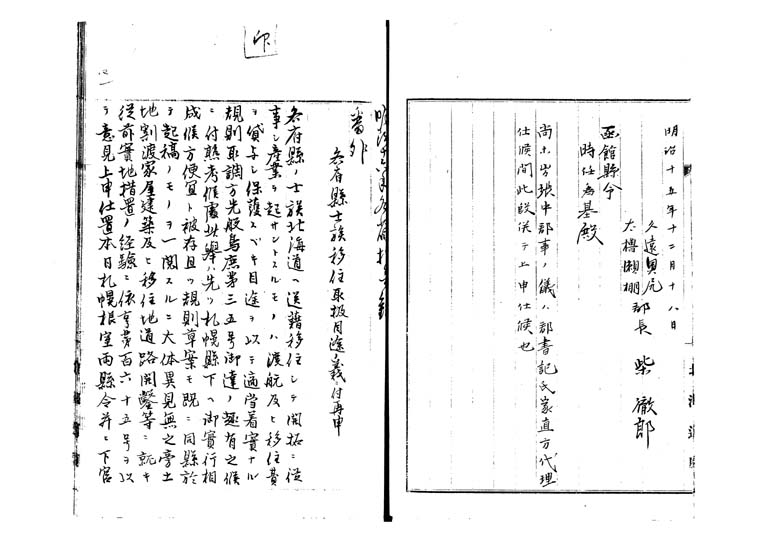 明治十五年十二月十八日
久遠奥尻
太櫓瀬棚 郡長 柴徹郎
函館縣令
時任為基殿
尚小官張中郡事ノ儀ハ郡書記氏家直方代理
仕候間此段併テ上申仕候也
印
番外
各府縣士族移住取扱目途義ニ付再申
各府縣ノ士族北海道ヘ送籍移住シテ開拓ニ從
事シ産業ヲ起サントスルモノハ渡航及ヒ移住費
ヲ貸与シ保護スベキ目途ヲ以テ適當着實ナル
規則取調方先般鳥庶第三五号御達ノ趣有之候
ニ付熟考候處此擧ハ先ツ札幌縣下ヘ御實行相
成候方便宜ト被存且つ規則草案モ既ニ同縣於
テ起稿ノモノヲ一閲スルニ大体異見無之旁土
地割渡家屋建築及ヒ移住地道路開鑿等ニ就キ
從前實地措置ノ經驗ニ依リ第百六十五号ヲ以
テ意見上申仕置本日札幌根室両縣令并ニ下官